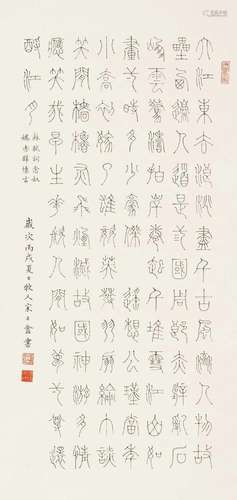 大江東去浪淘盡千古風流人物故
壘西邊人道是三國周郎赤壁亂石
崩雲驚濤裂岸捲起千堆雪江山如
畫一時多少豪傑遙想公瑾當年
小喬初嫁了雄姿英發羽扇綸巾談
笑間檣櫓灰飛煙滅故國神遊多情
應笑我早生華髮人間如夢一尊還
酹江月
蘇軾詞念奴
嬌赤壁懷古
歲次丙戌夏日牧人宋盦書